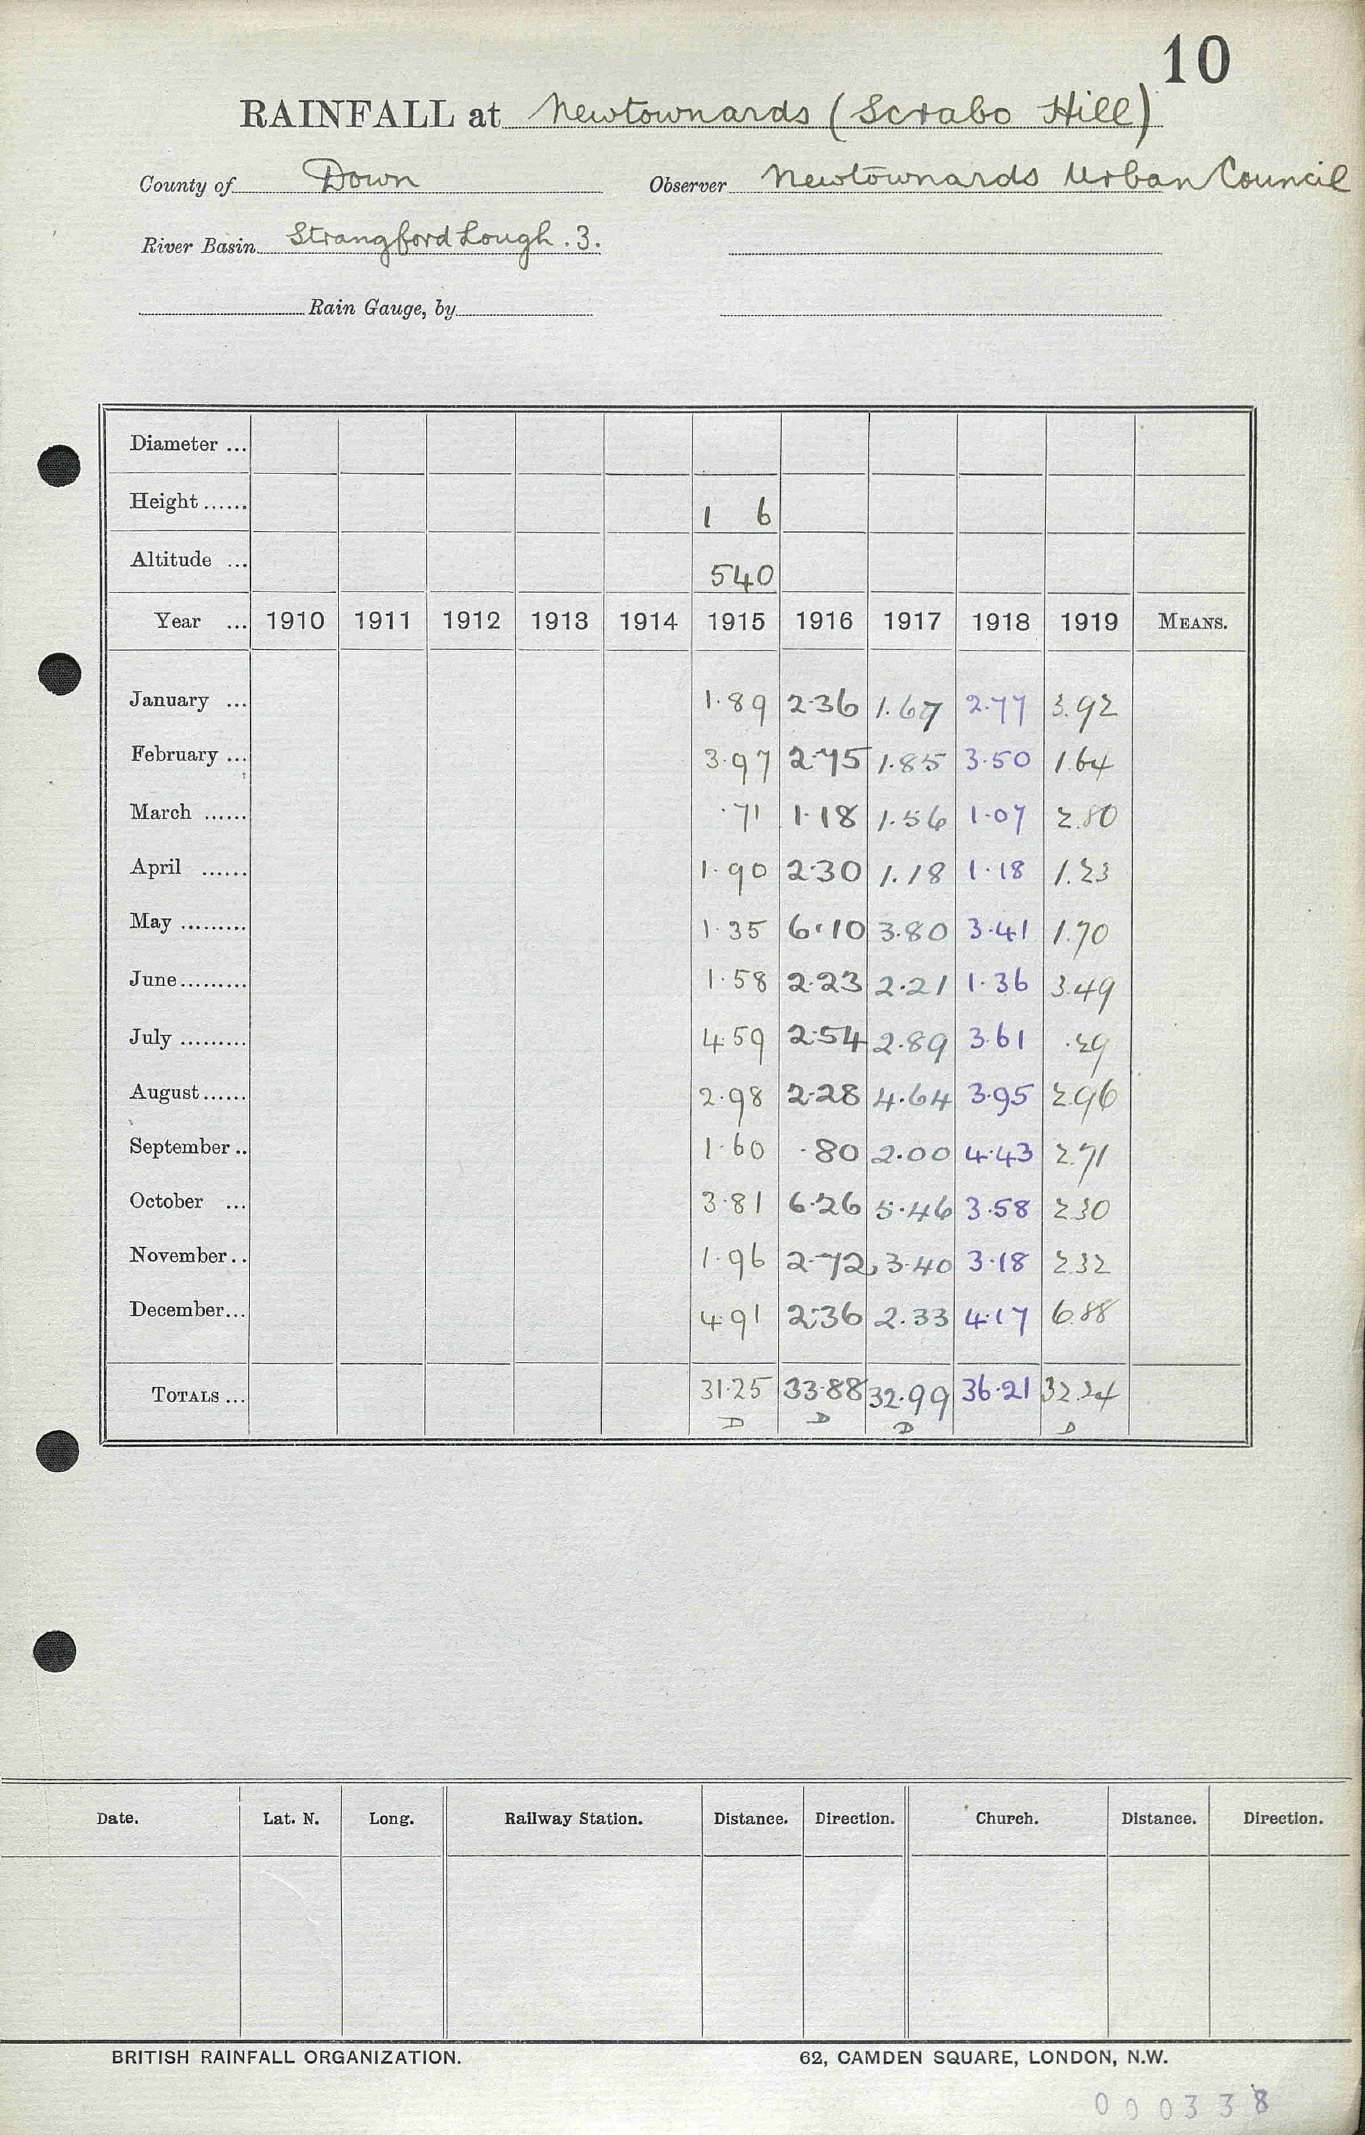 10
RAINFALL at Newtownards (Scrabo Hill)
County of Down Observer Newtownards Urban Council
River Basin Strangford Lough . 3.
Rain Gauge, by
Diameter ...
Height ...... 1 6
Altitude ... 540
Year ... 1910 1911 1912 1913 1914 1915 1916 1917 1918 1919 MEANS.
January ... 1.89 2.36 1.67 2.77 3.92
February ... 3.97 2.75 1.85 3.50 1.64
March ...... .71 1.18 1.56 1.07 2.80
April ...... 1.90 2.30 1.18 1.18 1.23
May ......... 1.35 6.10 3.80 3.41 1.70
June ......... 1.58 2.23 2.21 1.36 3.49
July ......... 4.59 2.54 2.89 3.61 .29
August ...... 2.98 2.28 4.64 3.95 2.96
September .. 1.60 .80 2.00 4.43 2.71
October ... 3.81 6.26 5.46 3.58 2.30
November .. 1.96 2.72 3.40 3.18 2.32
December ... 4.91 2.36 2.33 4.17 6.88
TOTALS ... 31.25 33.88 32.99 36.21 32.24
D D D D
Date. Lat. N. Long. Railway Station. Distance. Direction. Church. Distance. Direction.
BRITISH RAINFALL ORGANIZATION. 62, CAMDEN SQUARE, LONDON, N.W.
000338